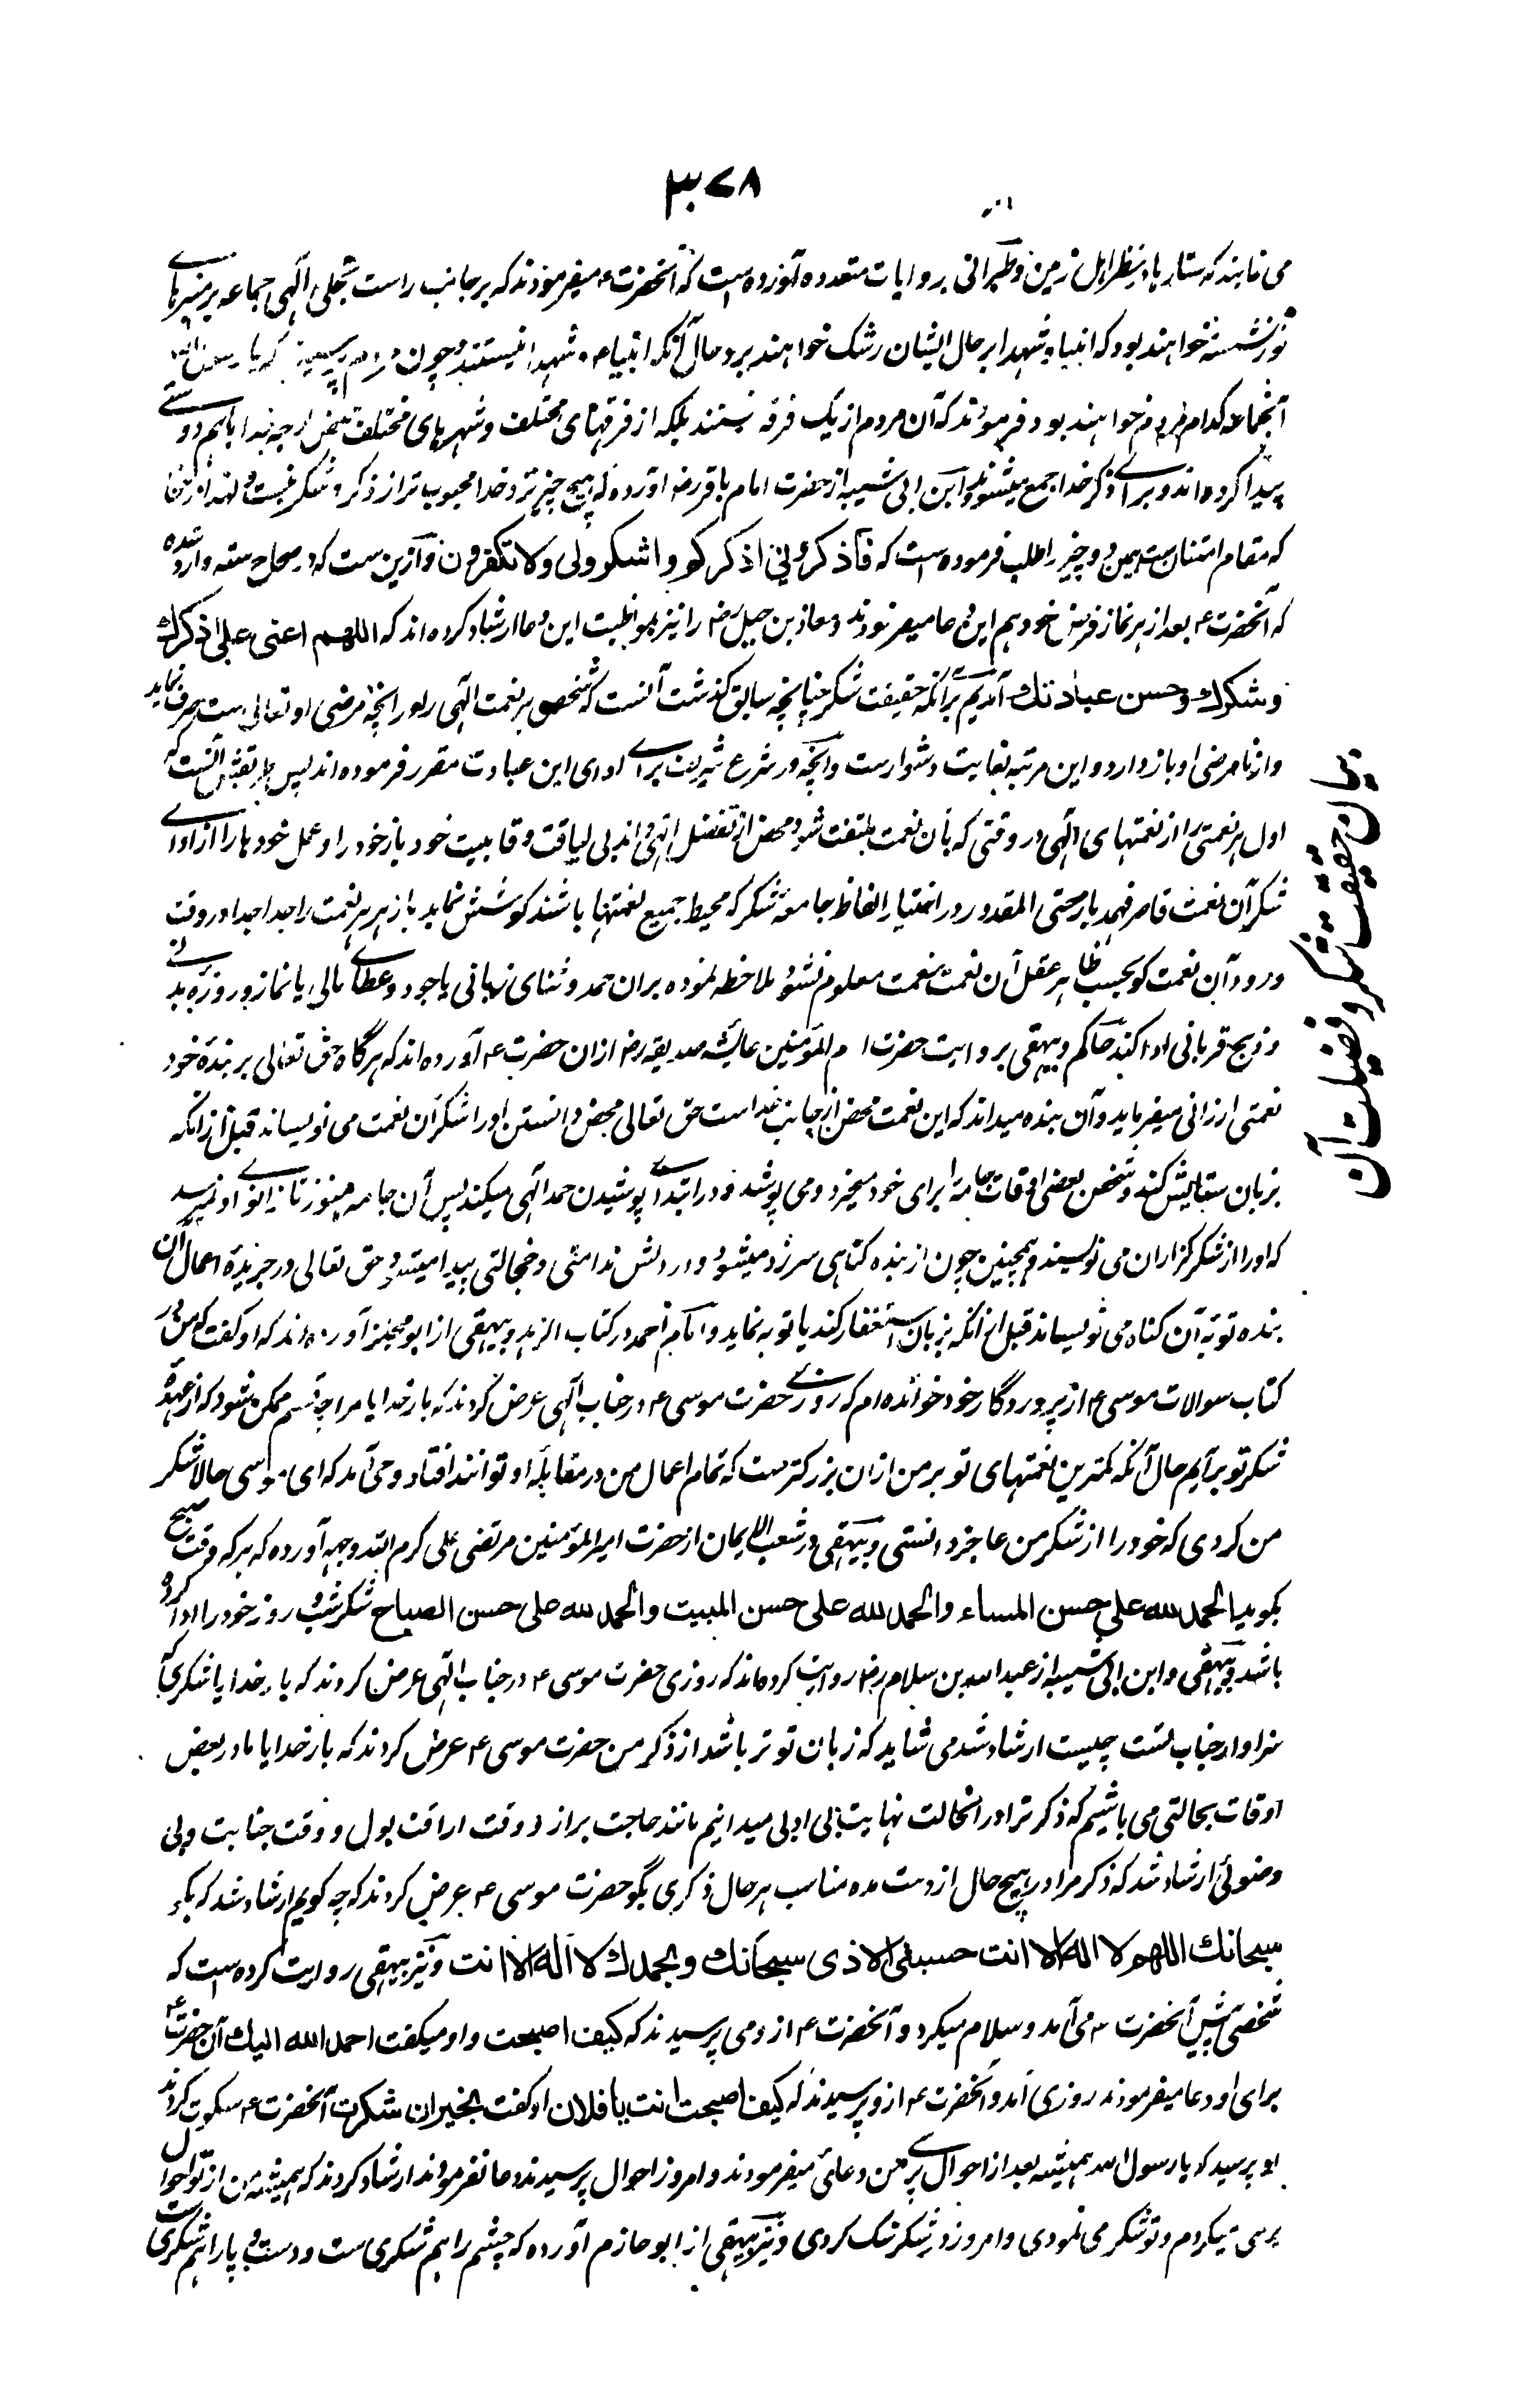 ۳۷۸
می نمایند که ستارها بنظر اهل زمین و طبرانی بروایات متعدده آورده است که آنحضرت ؐ میفرمودند که بر جانب راست تجلی الهی جماعه بر منبرهای
نور نشسته خواهند بود که انبیا و شهدا بر حال ایشان رشک خواهند برد حال آنکه انبیا و شهدا نیستند چون مردم پرسیدند که یا رسول الله
آنجماعه کدام مردم خواهند بود فرمودند که آن مردم از یک فرقه نیستند بلکه از فرقهای مختلف و شهرهای مختلف محض از جهت خدا باهم دوستی
پیدا کرده اند و برای ذکر خدا جمع میشوند و ابن ابی شیبه از حضرت امام باقر رض آورده که هیچ چیز نزد خدا محبوب تر از ذکر و شکر نیست و لهذا درینجا
که مقام امتنان ست همین دو چیز را طلب فرموده است که فاذکرونی اذکرکم واشکروا لی ولا تکفرون و ازین ست که در صحاح سته وارد شده
که آنحضرت ؐ بعد از هر نماز فرض خود هم این دعا میفرمودند و معاذ بن جبل رض را نیز بمواظبت این دعا ارشاد کرده اند که اللهم اعنی علی ذکرک
وشکرک وحسن عبادتک آمدیم برآنکه حقیقت شکر چنانچه سابق گذشت آنست که شخص هر نعمت الهی را در آنچه مرضی او تعالی ست صرف نماید
و از نامرضی او باز دارد و این مرتبه بغایت دشوارست و آنچه در شرع شریف برای ادای این عبادت مقرر فرموده اند پس طریقش آنست که
اول هر نعمتی را از نعمتهای الهی در وقتی که بآن نعمت ملتفت شود محض از تفضل الهی داند بی لیاقت و قابلیت خود باز خود را و عمل خود را از ادای
شکر آن نعمت قاصر فهمد باز حتی المقدور در اختیار الفاظ جامعه شکر که محیط جمیع نعمتها باشند کوشش نماید باز هر هر نعمت را جدا جدا در وقت
ورود آن نعمت گو بحسب ظاهر عقل آن نعمت نعمت معلوم نشود ملاحظه نموده بران حمد و ثنای زبانی یا جود و عطای مالی یا نماز و روزه بدنی
و ذبح قربانی ادا کند حاکم و بیهقی بروایت حضرت ام المؤمنین عائشه صدیقه رض ازان حضرت ؐ آورده اند که هرگاه حق تعالی بر بنده خود
نعمتی ارزانی میفرماید و آن بنده میداند که این نعمت محض از جانب خداست حق تعالی بمحض دانستن او را شکر آن نعمت می نویساند قبل ازانکه
بزبان ستایش کند و شخص بعضی اوقات جامه را برای خود میخرد و می پوشد و در ابتدای پوشیدن حمد الهی میکند پس آن جامه هنوز تا زانوی او نمیرسد
که او را از شکرگزاران می نویسند و همچنین چون از بنده گناهی سرزد میشود و در دلش ندامتی و خجالتی پیدا میشود حق تعالی در جریدهٔ اعمال آن
بنده توبهٔ آن گناه می نویساند قبل ازآنکه بزبان استغفار کند یا توبه نماید و امام احمد در کتاب الزهد و بیهقی از ابو آورده اند که او گفت که من در
کتاب سوالات موسی ؑ از پروردگار خود خوانده ام که روزی حضرت موسی ؑ در جناب الهی عرض کردند که بار خدایا مرا چه قسم ممکن شود که از عهدهٔ
شکر تو برآیم حال آنکه کمترین نعمتهای تو بر من ازان بزرگترست که تمام اعمال من در مقابله او توانند افتاد وحی آمد که ای موسی حالا شکر
من کردی که خود را از شکر من عاجز دانستی و بیهقی در شعب الایمان از حضرت امیر المؤمنین مرتضی علی کرم الله وجهه آورده که هر که وقت صبح
بگوید الحمد لله علی حسن المساء والحمد لله علی حسن المبیت والحمد لله علی حسن الصباح شکر شب و روز خود را ادا کرده
باشد و بیهقی و ابن ابی شیبه از عبد الله بن سلام رض روایت کرده اند که روزی حضرت موسی ؑ در جناب الهی عرض کردند که بار خدایا شکری که
سزاوار جناب تست چیست ارشاد شد می شاید که زبان تو تر باشد از ذکر من حضرت موسی ؑ عرض کردند که بار خدایا ما در بعض
اوقات بحالتی می باشیم که ذکر ترا در آنحالت نهایت بی ادبی میدانیم مانند حاجت براز و وقت اراقت بول و وقت جنابت و بی
وضوئی ارشاد شد که ذکر مرا در هیچ حال از دست مده مناسب هر حال ذکری بگو حضرت موسی ؑ عرض کردند که چه گویم ارشاد شد که بگو
سبحانك اللهم لا اله الا انت حسبنی الاذی سبحانك وبحمدك لا اله الا انت و نیز بیهقی روایت کرده است که
شخصی پیش آنحضرت ؐ می آمد و سلام میکرد و آنحضرت ؐ از وی پرسیدند که کیف اصبحت و او میگفت احمد الله الیك آن حضرت ؐ
برای او دعا میفرمودند روزی آمد و آنحضرت ؐ از و پرسیدند که کیف اصبحت انت یا فلان او گفت بخیر ان شکرت آنحضرت ؐ سکوت کردند
او پرسید که یا رسول الله همیشه بعد از احوال پرسی من دعائی میفرمودند و امروز احوال پرسیدند و دعا نفرمودند ارشاد کردند که همیشه من از تو احوال
پرسی میکردم و تو شکر می نمودی و امروز در شکر شک کردی و نیز بیهقی از ابو حازم آورده که چشم را هم شکری ست و دست و پا را هم شکری ست
بیان حقیقت شکر و فضیلت آن